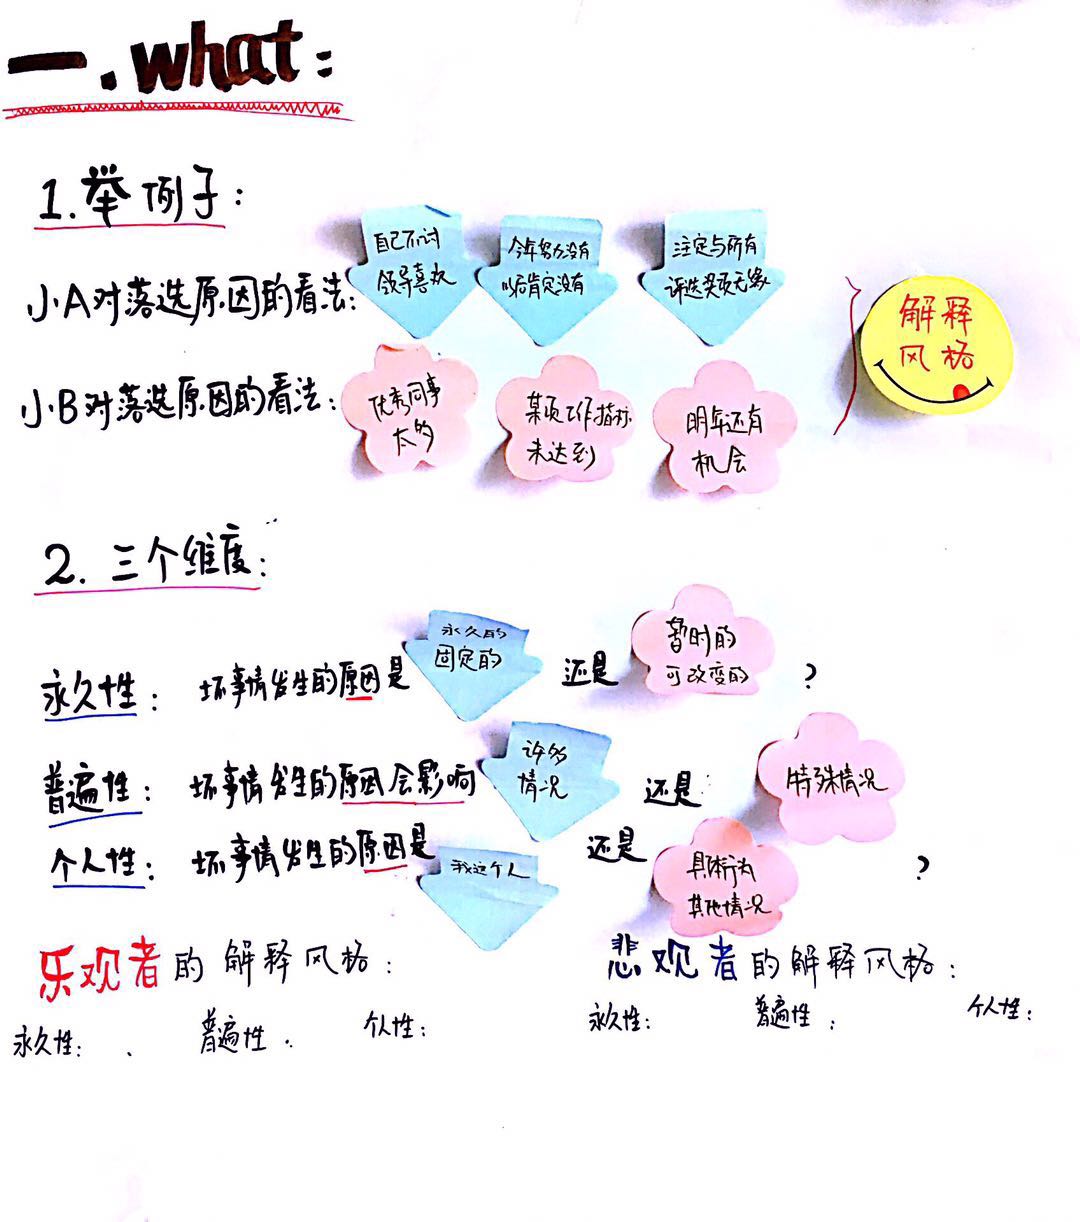 一.what:
1.举例子:
小A对落选原因的看法:
自己不讨
领导喜欢
今年努力没有
以后肯定没有
注定与所有
评选奖项无缘
解释
风格
小B对落选原因的看法:
优秀同事
太多
某项工作指标
未达到
明年还有
机会
2.三个维度:
永久性: 坏事情发生的原因是
永久的
固定的
还是
暂时的
可改变的
?
普遍性: 坏事情发生的原因会影响
许多
情况
还是
特殊情况
个人性: 坏事情发生的原因是
我这个人
还是
具体行为
其他情况
?
乐观者的解释风格:
永久性: 普遍性. 个人性:
悲观者的解释风格:
永久性: 普遍性: 个人性: